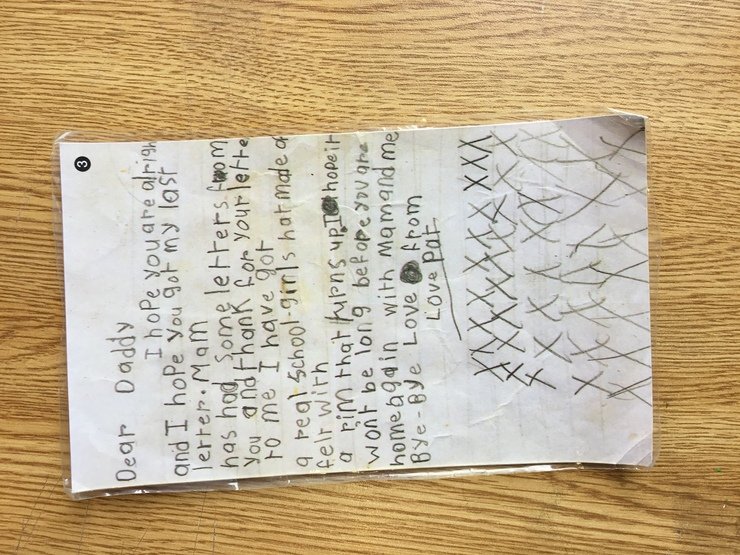 3
Dear Daddy
I hope you are alrigh
and I hope you got my last
letter. Mam
has had some letters from
you and thank for your lette
to me I have got
a real school-girls hat made of
felt with
a rim that turns up. I hope it
wont be long before you are
home again with Mam and me
Bye-Bye Love from
Love Pat
XXXXXXXX XXX